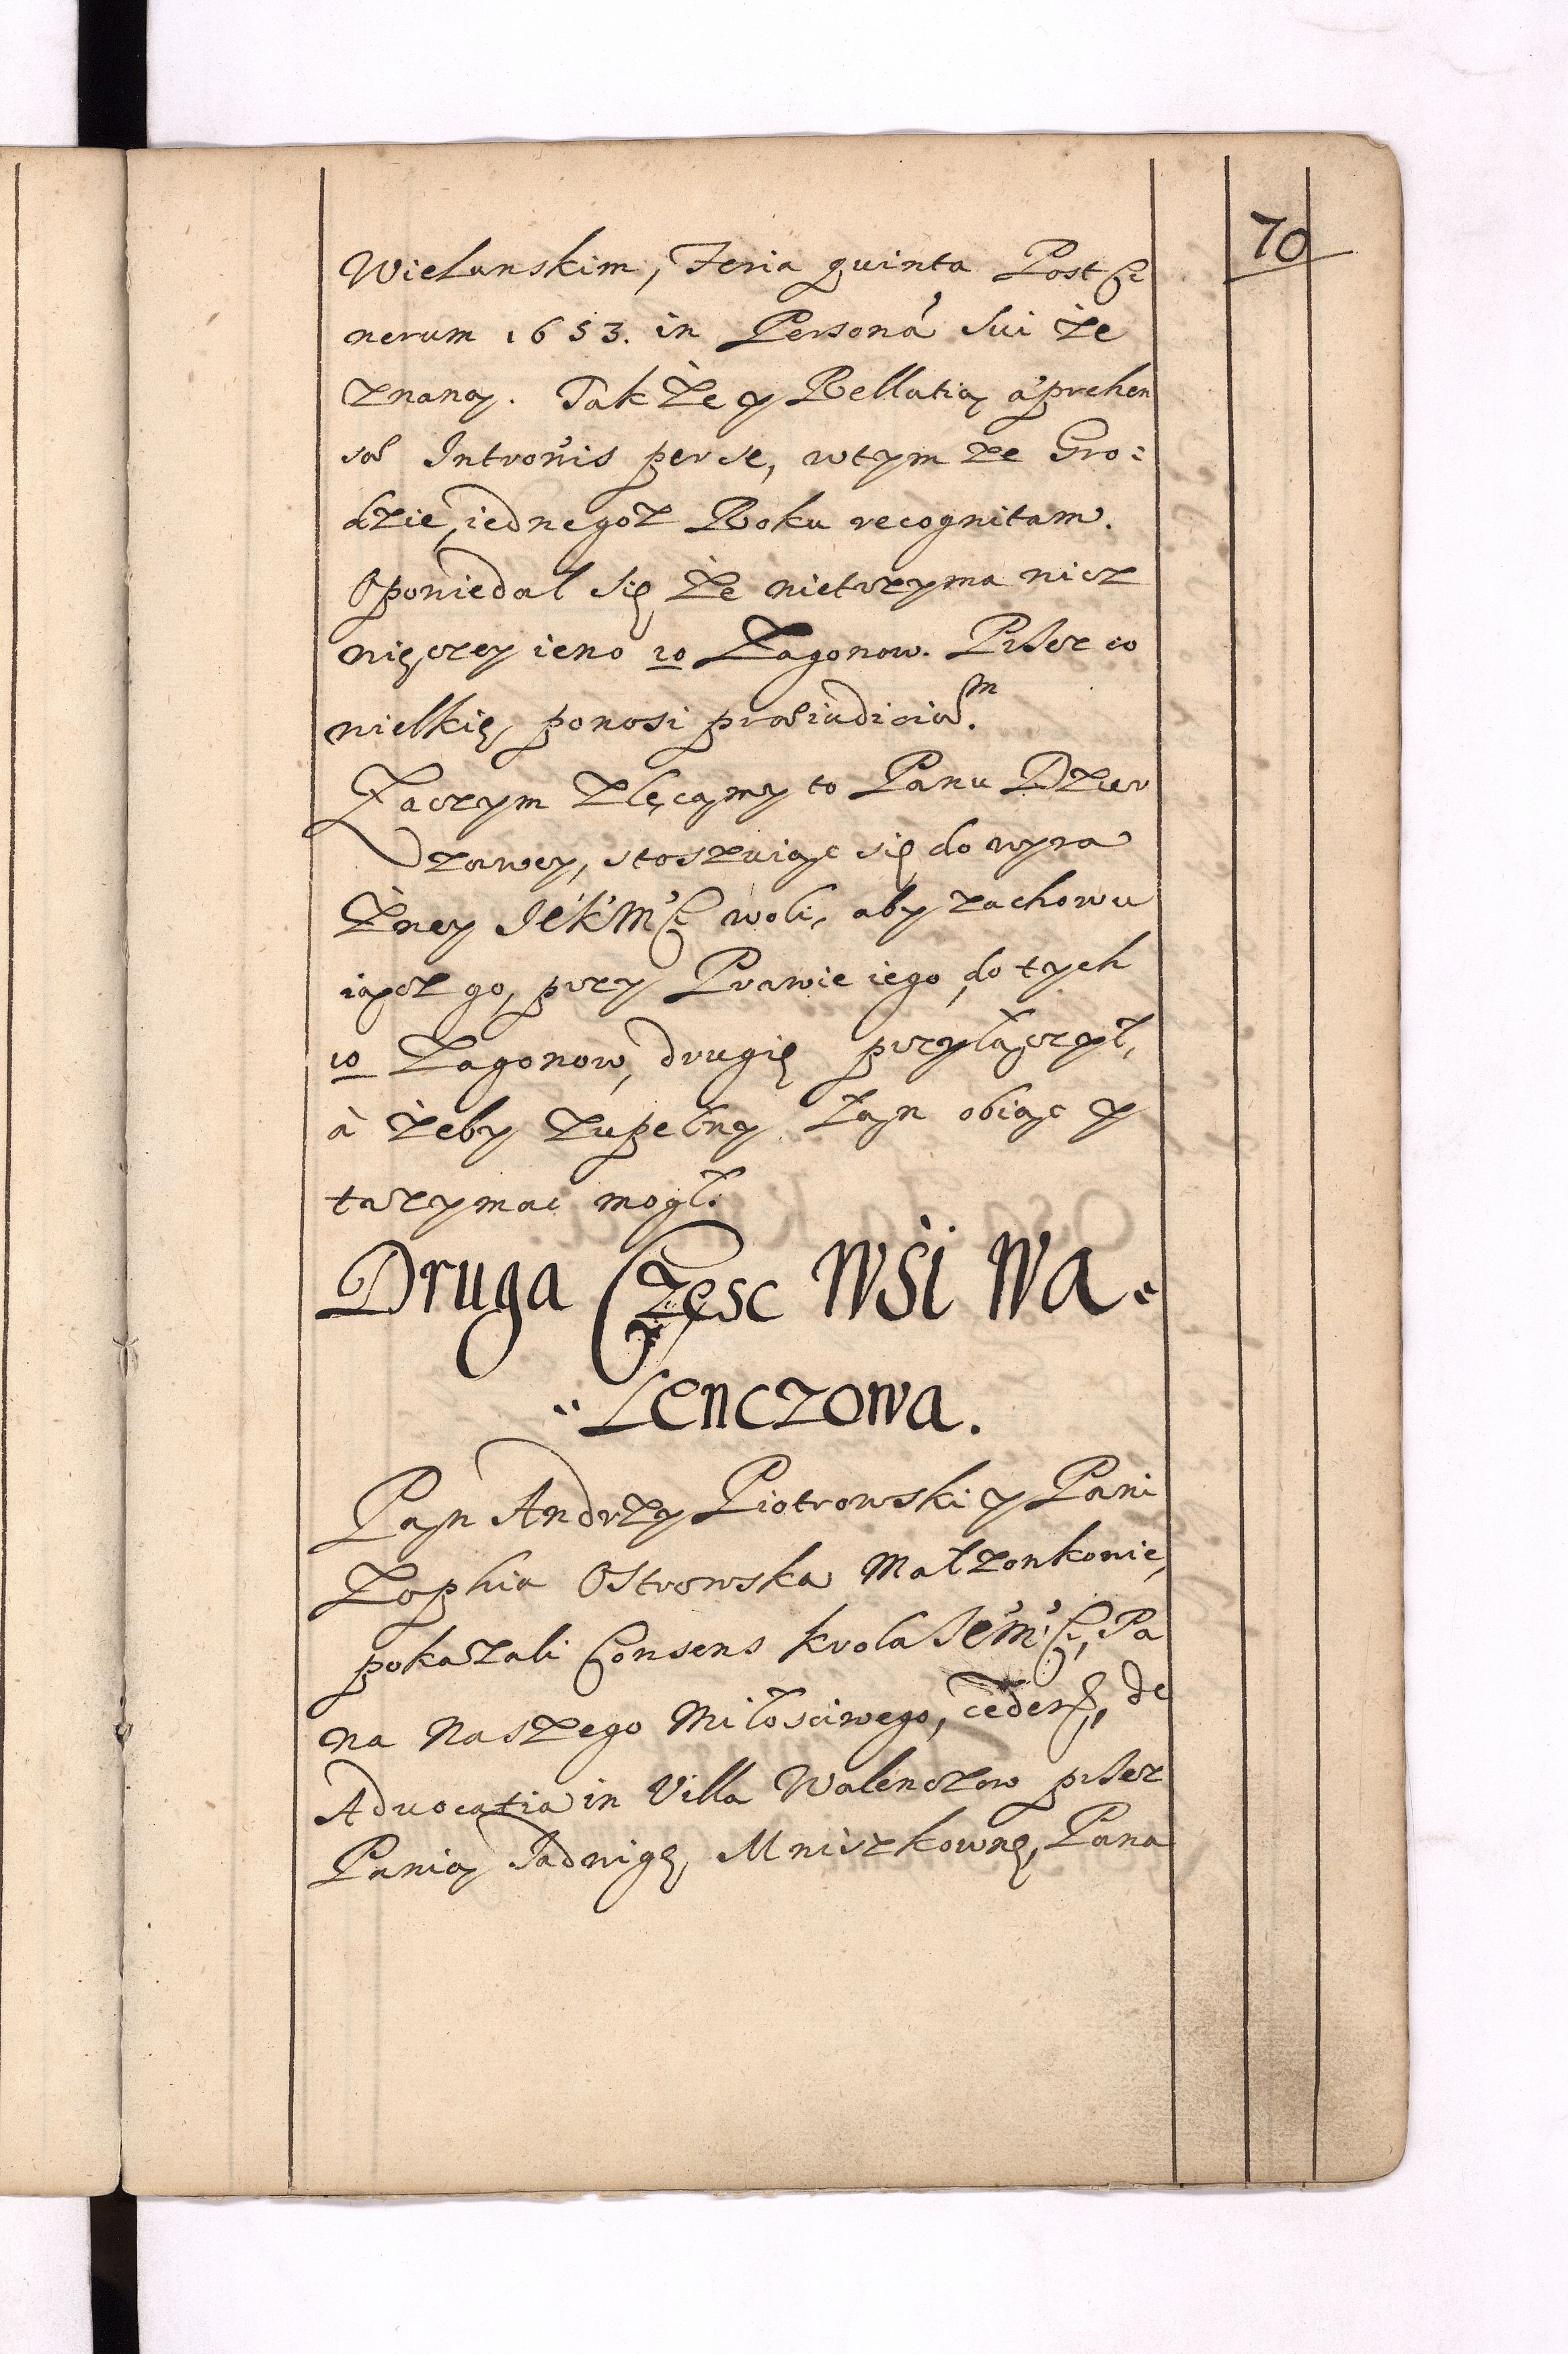 70
Wielunskim, Feria quinta Post Ci
nerum 1653. in Personá Sui ze
znaną. Tak że y Rellatią aprehen
sæ Intronis per se, wtym ze Gro:
dzie, iednegoz Roku recognitam.
Opowiedal się że nietrzyma nicz
więczey ieno 10 Zagonow. Przez co
wielkię ponosi præiudiciũm.
Zaczym zlęcamy to Panu Dzier
zawcy, stoszuiąc się do wyra
źney JéK'M'Ci woli, aby zachowu
iącz go, przy Prawie iego, do tych
10 Zagonow, drugię przyłączył,
à żeby zupełny łan obiąc y
trzymac mogł.
Druga Częsc WSi Wa-
"Lenczowa.
Pan Andrzy Piotrowski y Pani
Zophia Ostrowska Małzonkowie,
pokazali Consens krola Jé'm'Ci, Pa
na Naszego Miłosciwego, ceden: de
Advocatia in Villa Walenczow przez
Panią Jadwigę, Mniszkownę, Pana